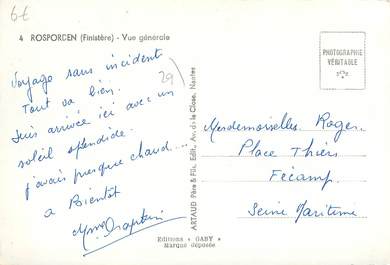 6€
4 ROSPORDEN (Finistère) - Vue générale
Voyage sans incident
Tout va bien.
Suis arrivée ici avec un
soleil splendide.
j'avais presque chaud...
à Bientôt
Mme
29
ARTAUD Père & Fils, Edit., Av. de la Close, Nantes
PHOTOGRAPHIE
VÉRITABLE
Mesdemoiselles Roger
Place Thiers
Fécamp.
Seine Maritime
Editions "GABY"
Marque déposée